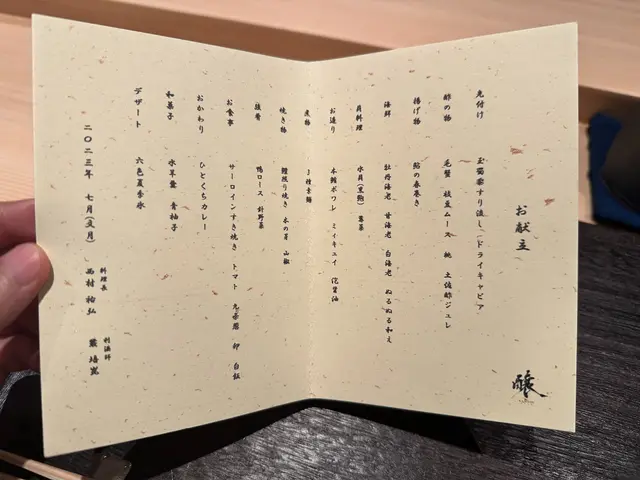 お献立
先付け　玉蜀黍すり流し、ドライキャビア
酢の物　毛蟹　枝豆ムース　桃　土佐酢ジュレ
揚げ物　鮎の春巻き
海鮮　牡丹海老　甘海老　白海老　ぬるぬる和え
貝料理　水貝(黒鮑)　蓴菜
お造り　本鮪ポワレ　ミィキュイ
煮物
焼き物　鰻照り焼き　木の芽　山椒
鴨ロース　賀茂茄子
お食事　サーロインすき焼き　トマト　卵　白飯
おかわり　ひとくちカレー
和菓子　水羊羹　青柚子
デザート　六色夏季氷
二〇二三年　七月(文月)
料理長　西村裕弘